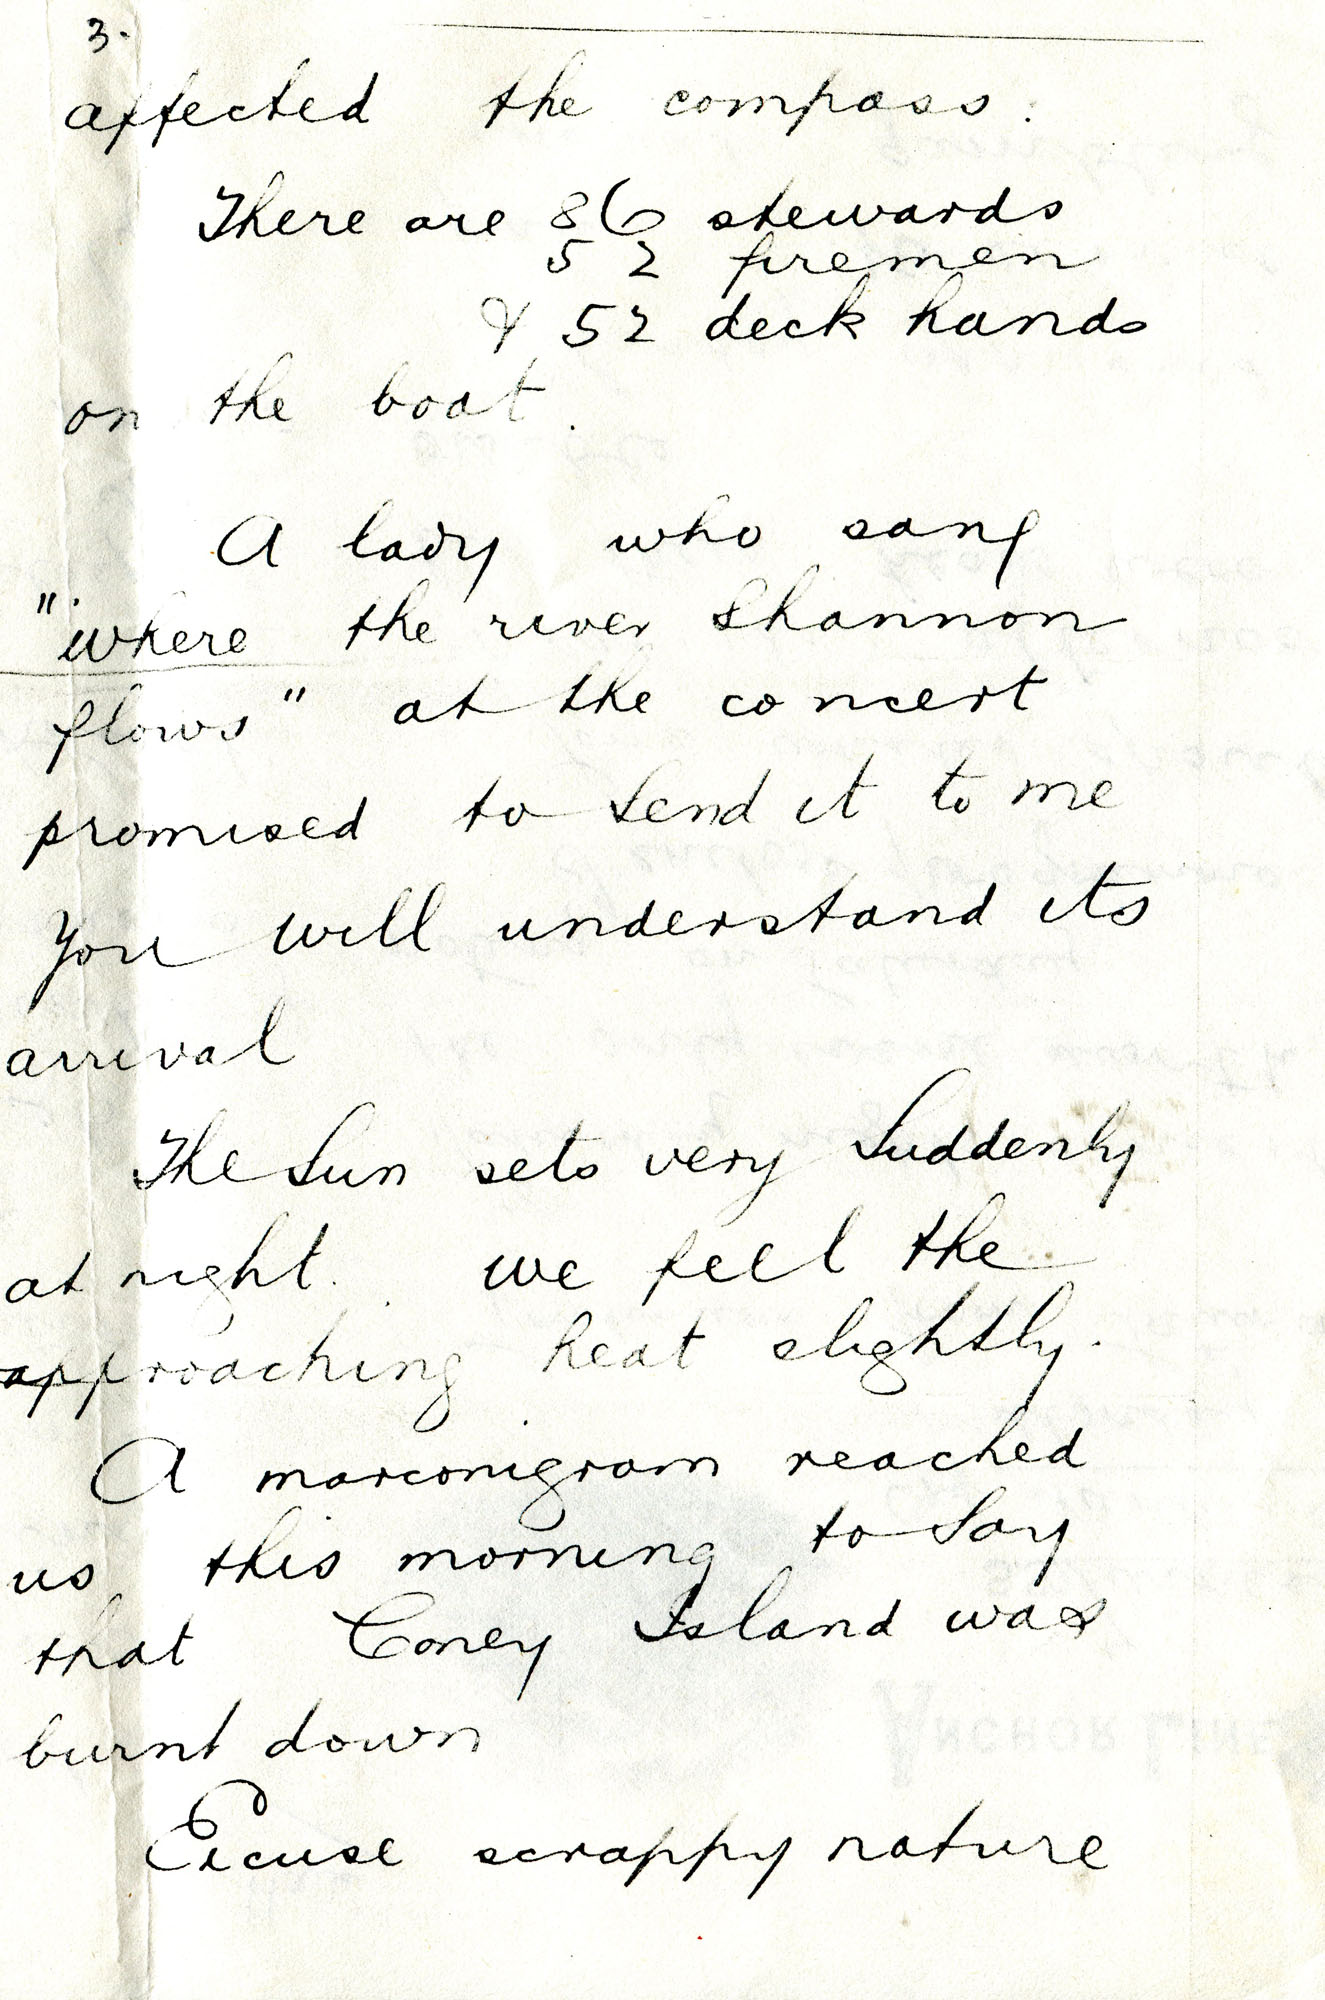 3.
affected the compass.
There are 86 stewards
52 firemen
& 52 deck hands
on the boat.
A lady who sang
"where the river Shannon
flows" at the concert
promised to send it to me
You will understand its
arrival
The Sun sets very Suddenly
at night. we feel the
approaching heat slightly.
A marconigram reached
us this morning to Say
that Coney Island was
burnt down
Excuse scrappy nature
ANCHOR LINE